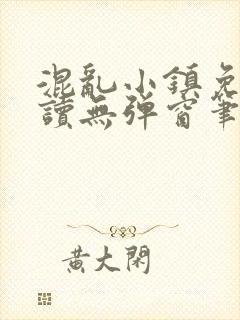 混亂小鎮免
讀無彈窗筆
黃大閑